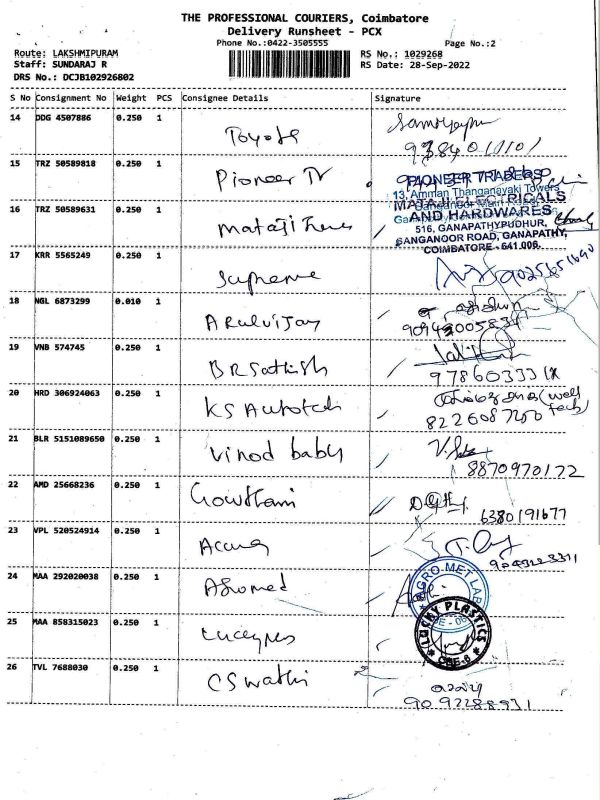 THE PROFESSIONAL COURIERS, Coimbatore
Delivery Runsheet - PCX
Phone No.:0422-3505555 Page No.:2
Route: LAKSHMIPURAM RS No.: 1029268
Staff: SUNDARAJ R RS Date: 28-Sep-2022
DRS No.: DCJB102926802
S No Consignment No Weight PCS Consignee Details Signature
14 DDG 4507886 0.250 1 Toyota
15 TRZ 50589818 0.250 1 Pioneer Tr
PIONEER TRADERS
13, Amman Thanganayaki Towers
16 TRZ 50589631 0.250 1 Mataji
MATAJI ELECTRICALS
AND HARDWARES
516, GANAPATHYPUDHUR,
SANGANOOR ROAD, GANAPATHY,
COIMBATORE - 641 006.
17 KRR 5565249 0.250 1 Supreme
9025651690
18 NGL 6873299 0.010 1 Arulvijay
19 VNB 574745 0.250 1 BR Sathish
20 HRD 306924063 0.250 1 KS Autotech
(well tech)
8226087200
21 BLR 5151089650 0.250 1 Vinod baby
8870970172
22 AMD 25668236 0.250 1 Gowthami
6380191677
23 VPL 520524914 0.250 1
24 MAA 292020038 0.250 1
AGRO MET LAB
25 MAA 858315023 0.250 1
LUCKY PLASTICS
CBE-6
26 TVL 7688030 0.250 1 C Swathi
9092288931